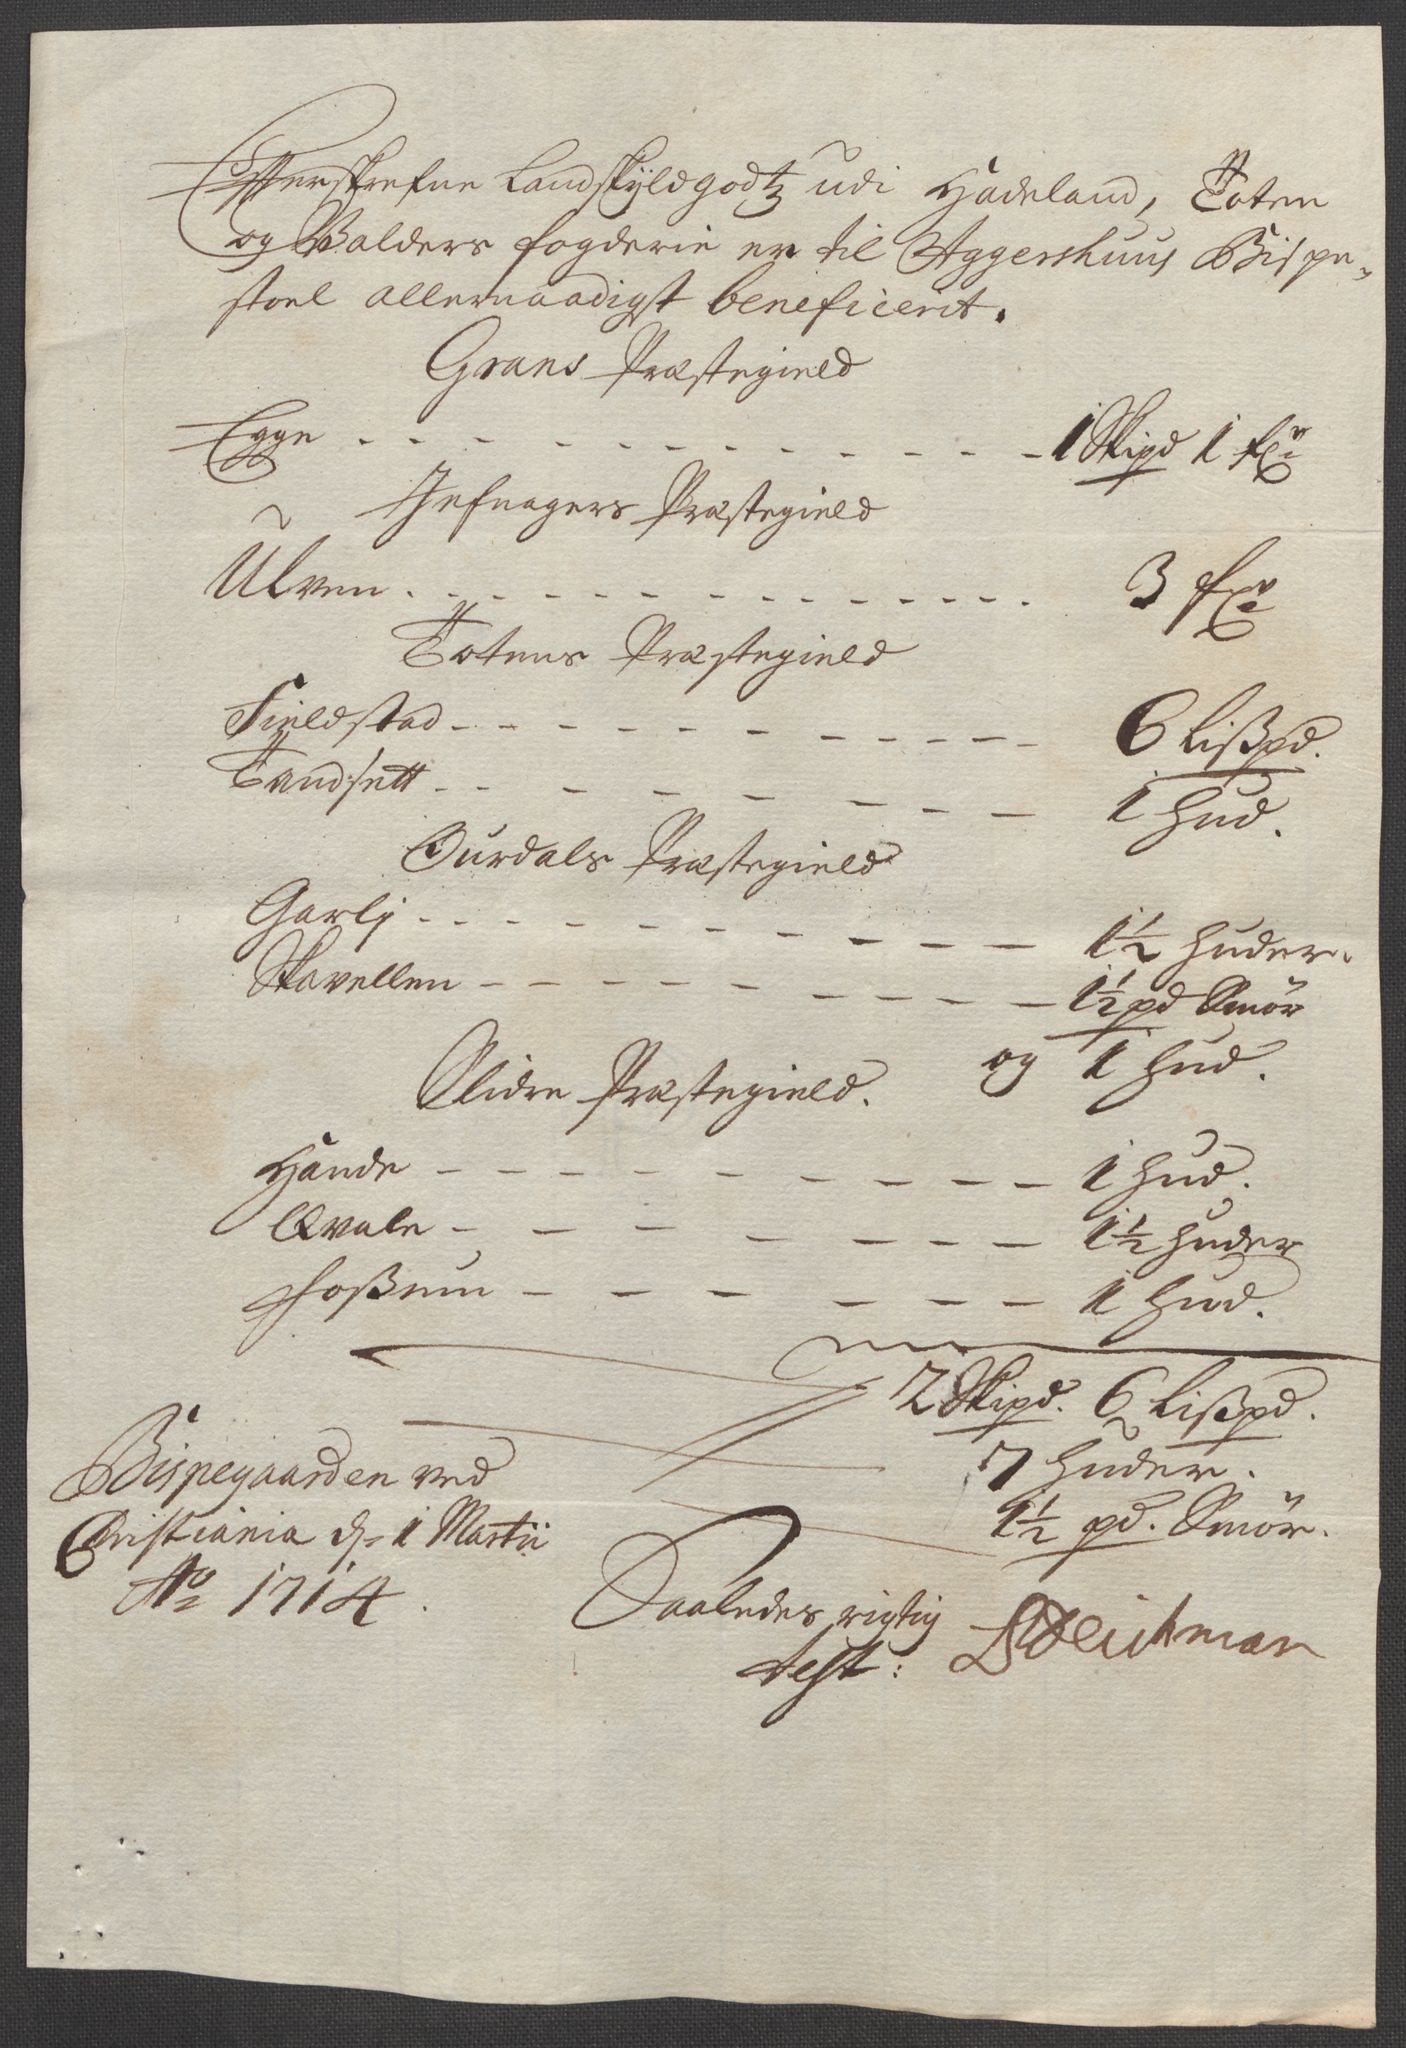 Efterskrefne Landskÿldgodtz udi Hadeland, Toten
og Valders fogderie er til Aggershuus Bispe-
stoel allernaadigst beneficerit.
Grans Præstegield
Egge - - - - - - - - - - - 1 Skipd 1 fr:
Jefnagers Præstegield
Ulven - - - - - - - - - - - 3 fr:
Totens Præstegield
Fieldstad - - - - - - - - - - 6 Lißpd.
Tandsett - - - - - - - - 1 Hud.
Ourdals Præstegield
Garlj - - - - - - - - - - 1½ Huder.
Skavellen - - - - - - - - - 1½ pd Smör
og 1 Hud.
Slidre Præstegield.
Hande - - - - - - - - - 1 Hud.
Qvale - - - - - - - 1½ Huder
Foßum - - - - - - 1 Hud.
2 Skipd. 6 Lißpd.
7 Huder.
1½ pd. Smör.
Bispegaarden ved
Christiania d. 1 Martii
Ao 1714.
Saaledes rigtig
test: BDeichman